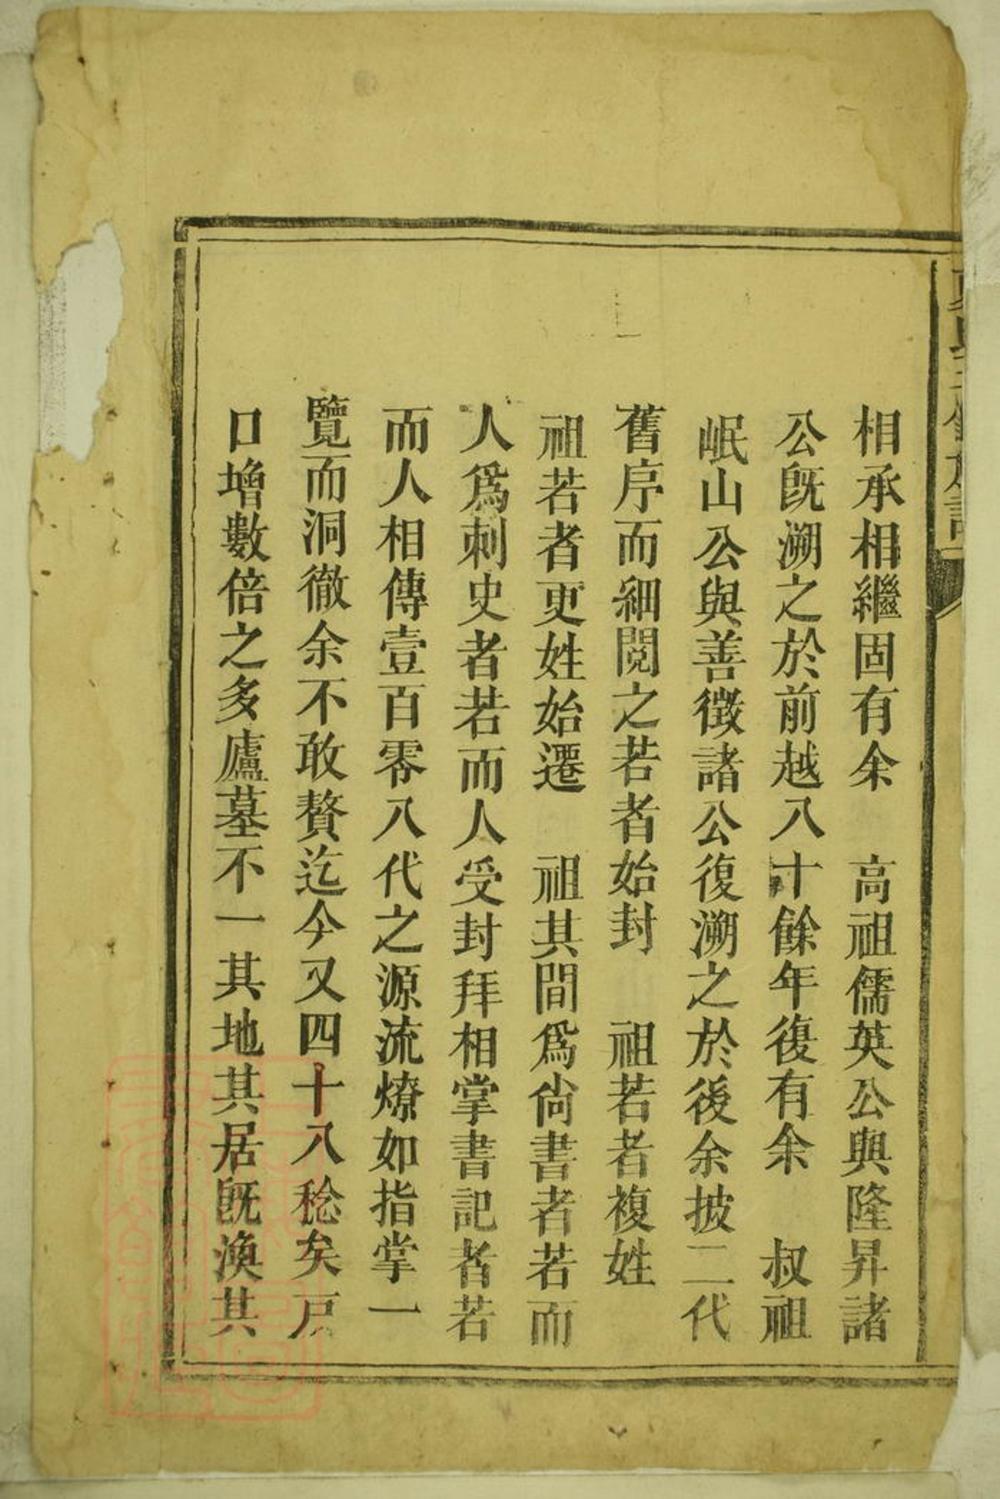 相承相繼固有余　高祖儒英公與隆昇諸
公旣溯之於前越八十餘年復有余　叔祖
岷山公與善徵諸公復溯之於後余披二代
舊序而細閱之若者始封　祖若者複姓
祖若者更姓始遷　祖其間爲尙書者若而
人爲刺史者若而人受封拜相掌書記者若
而人相傳壹百零八代之源流燎如指掌一
覽而洞徹余不敢贅迄今又四十八稔矣戸
口增數倍之多廬墓不一其地其居旣渙其